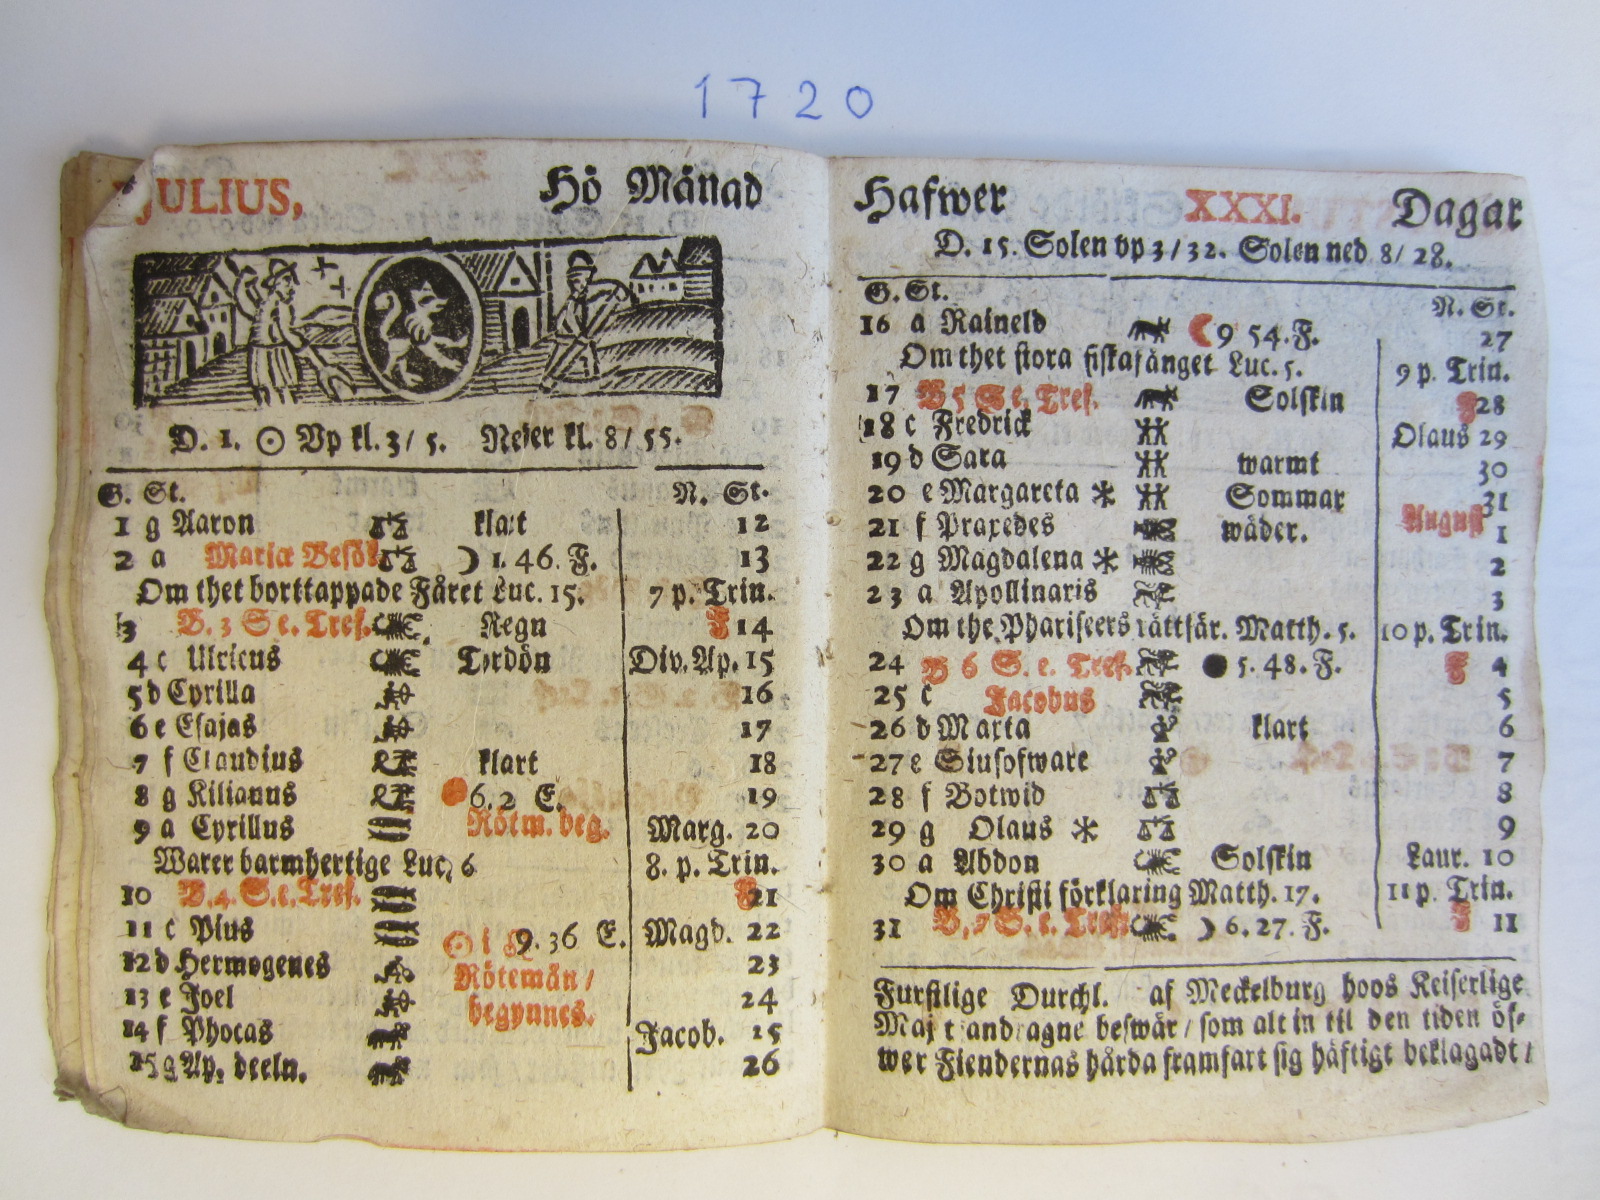 1720
JULIUS, Hö Månad
D. 1. ☉ Vp kl. 3/ 5. Neder kl. 8/ 55.
G. St. N. St.
1 g Aaron klart 12
2 a Mariæ Besök ☽ 1. 46. F. 13
Om thet borttappade Fåret Luc. 15. 7 p. Trin.
3 B. 3 S e. Tref. Regn F 14
4 c Ulricus Tordön Div. Ap. 15
5 d Cyrilla 16
6 e Esajas 17
7 f Claudius klart 18
8 g Kilianus 6. 2 E. 19
9 a Cyrillus Rötm. beg. Marg. 20
Warer barmhertige Luc, 6 8. p. Trin.
10 B. 4. S. e. Tref. F 21
11 c Pius ☉ i ♌ 9. 36 E. Magd. 22
12 d Hermogenes Rötemån / 23
13 e Joel begynnes. 24
14 f Phocas Jacob. 25
15 g Ap. deeln. 26
Hafwer XXXI. Dagar
D. 15. Solen vp 3/ 32. Solen ned 8/ 28.
G. St. N. St.
16 a Raineld ☾ 9 54. F. 27
Om thet stora fiskafånget Luc. 5. 9 p. Trin.
17 B 5 S e. Tref. Solskin F 28
18 c Fredrick Olaus 29
19 d Sara warmt 30
20 e Margareta * Sommar 31
21 f Praxedes wäder. August 1
22 g Magdalena * 2
23 a Apollinaris 3
Om the Phariseers rättfär. Matth. 5. 10 p. Trin.
24 B 6 S. e. Tref. ● 5. 48. F. F 4
25 c Jacobus 5
26 d Marta klart 6
27 e Siusofware 7
28 f Botwid 8
29 g Olaus * 9
30 a Abdon Solskin Laur. 10
Om Christi förklaring Matth. 17. 11 p. Trin.
31 B, 7 S. e. Tref. ☽ 6. 27. F. F 11
Furstlige Durchl. af Meckelburg hoos Keiserlige
Maj t andragne beswär / som alt in til den tiden öf-
wer Fiendernas hårda framfart sig häftigt beklagadt /